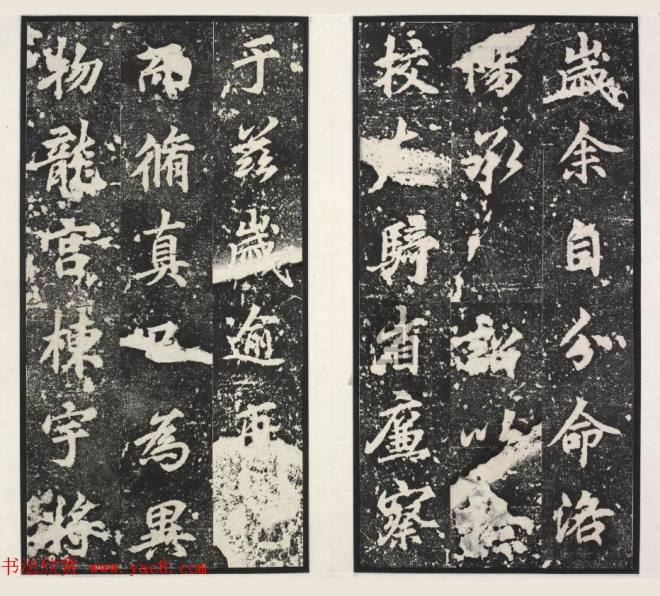 歲余自分命洛
陽承詔以
校大騎省廉察
于茲歲逾再
而脩真為異
物龍宮棟宇將
书法欣赏 www.yac8.com